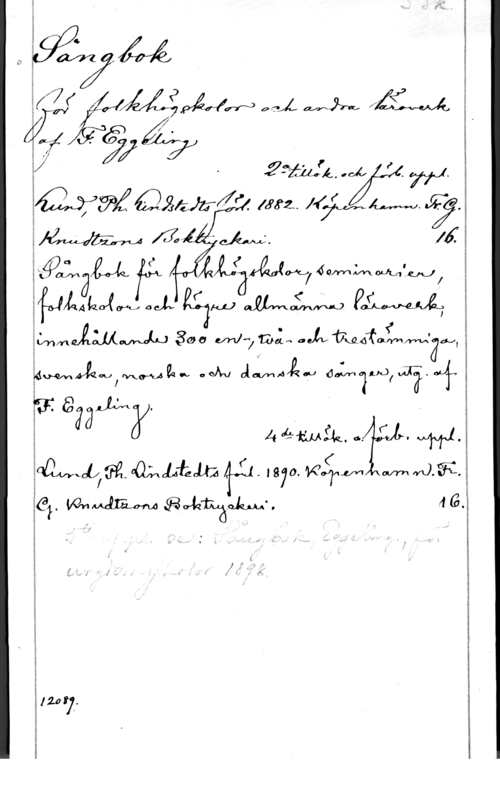 Sångbok
för folkhögskolor och andra läroverk
af F. Eggeling
2:a tillök. och förb. uppl.
Lund, Ph. Lindstedts förl. 1882. Köpenhamn. Fr. G.
Knudtzons Boktryckeri. 16.
Sångbok för folkhögskolor, seminarier,
folkskolor och högre allmänna läroverk,
innehållande 300 en-, två- och trestämmiga,
svenska, norska och danska sånger, utg. af
F. Eggeling.
4:de tillök. o. förb. uppl.
Lund, Ph. Lindstedts förl. 1890. Köpenhamn. Fr.
G. Knudtzons Boktryckeri. 16.
uppl. se: Sångbok, Eggelings, för
ungdomsskolor 1898.
12089.